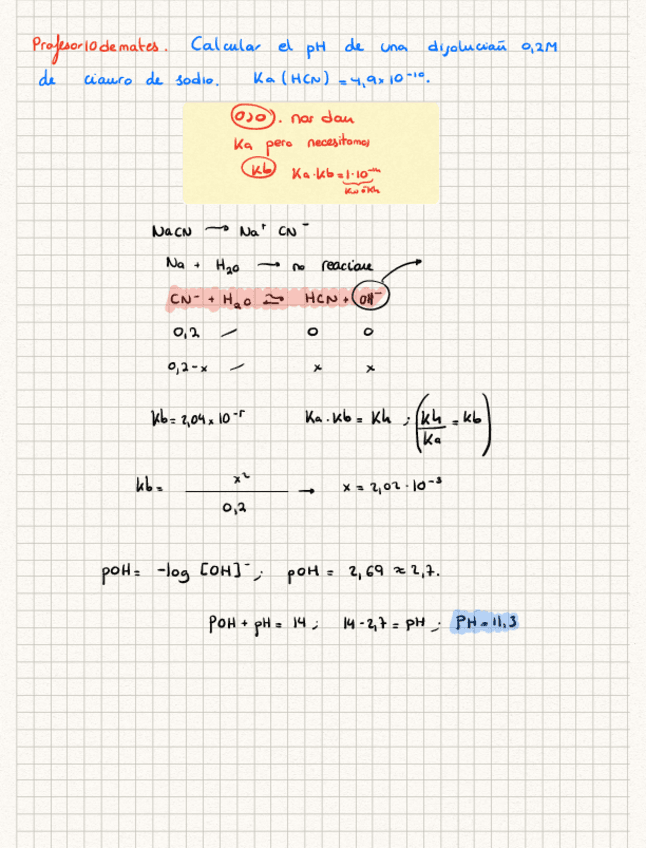 Profesor10demates. Calcular el pH de una disolución 0,2M
de cianuro de sodio. Ka (HCN) = 4,9x10⁻¹⁰.
OJO. nos dan
Ka pero necesitamos
Kb Ka·Kb = 1·10⁻¹⁴
Kw o Kh
NaCN → Na⁺ CN⁻
Na + H₂O → no reacciona
CN⁻ + H₂O ⇌ HCN + OH⁻
0,2 — 0 0
0,2-x — x x
Kb = 2,04 x 10⁻⁵ Ka·Kb = Kh ; (Kh/Ka = Kb)
Kb = x²/0,2 → x = 2,02·10⁻³
pOH = -log [OH]⁻; pOH = 2,69 ≈ 2,7.
POH + pH = 14 ; 14-2,7 = pH ; PH = 11,3